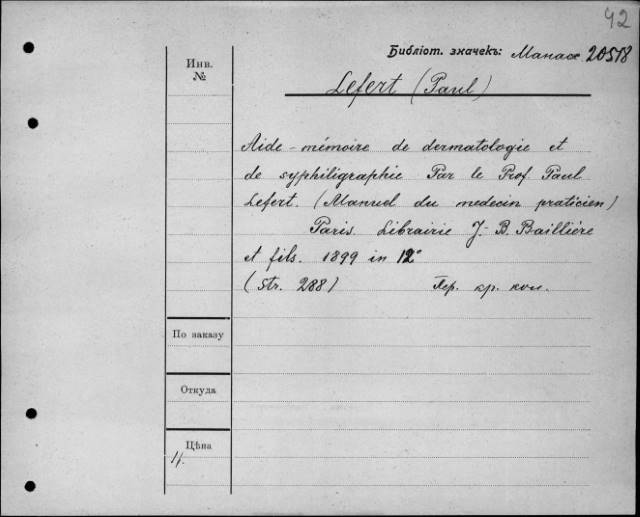 42
Библіот. значекъ: Манасе 20518
Инв.
№
Lefert (Paul)
Aide-mémoire de dermatologie et
de syphiligraphie Par le Prof. Paul
Lefert. (Manuel du medecin praticien)
Paris. Librairie J.-B. Baillière
et fils. 1899 in 12°
(Str. 288) Пер. кр. кол.
По заказу
Откуда
Цѣна